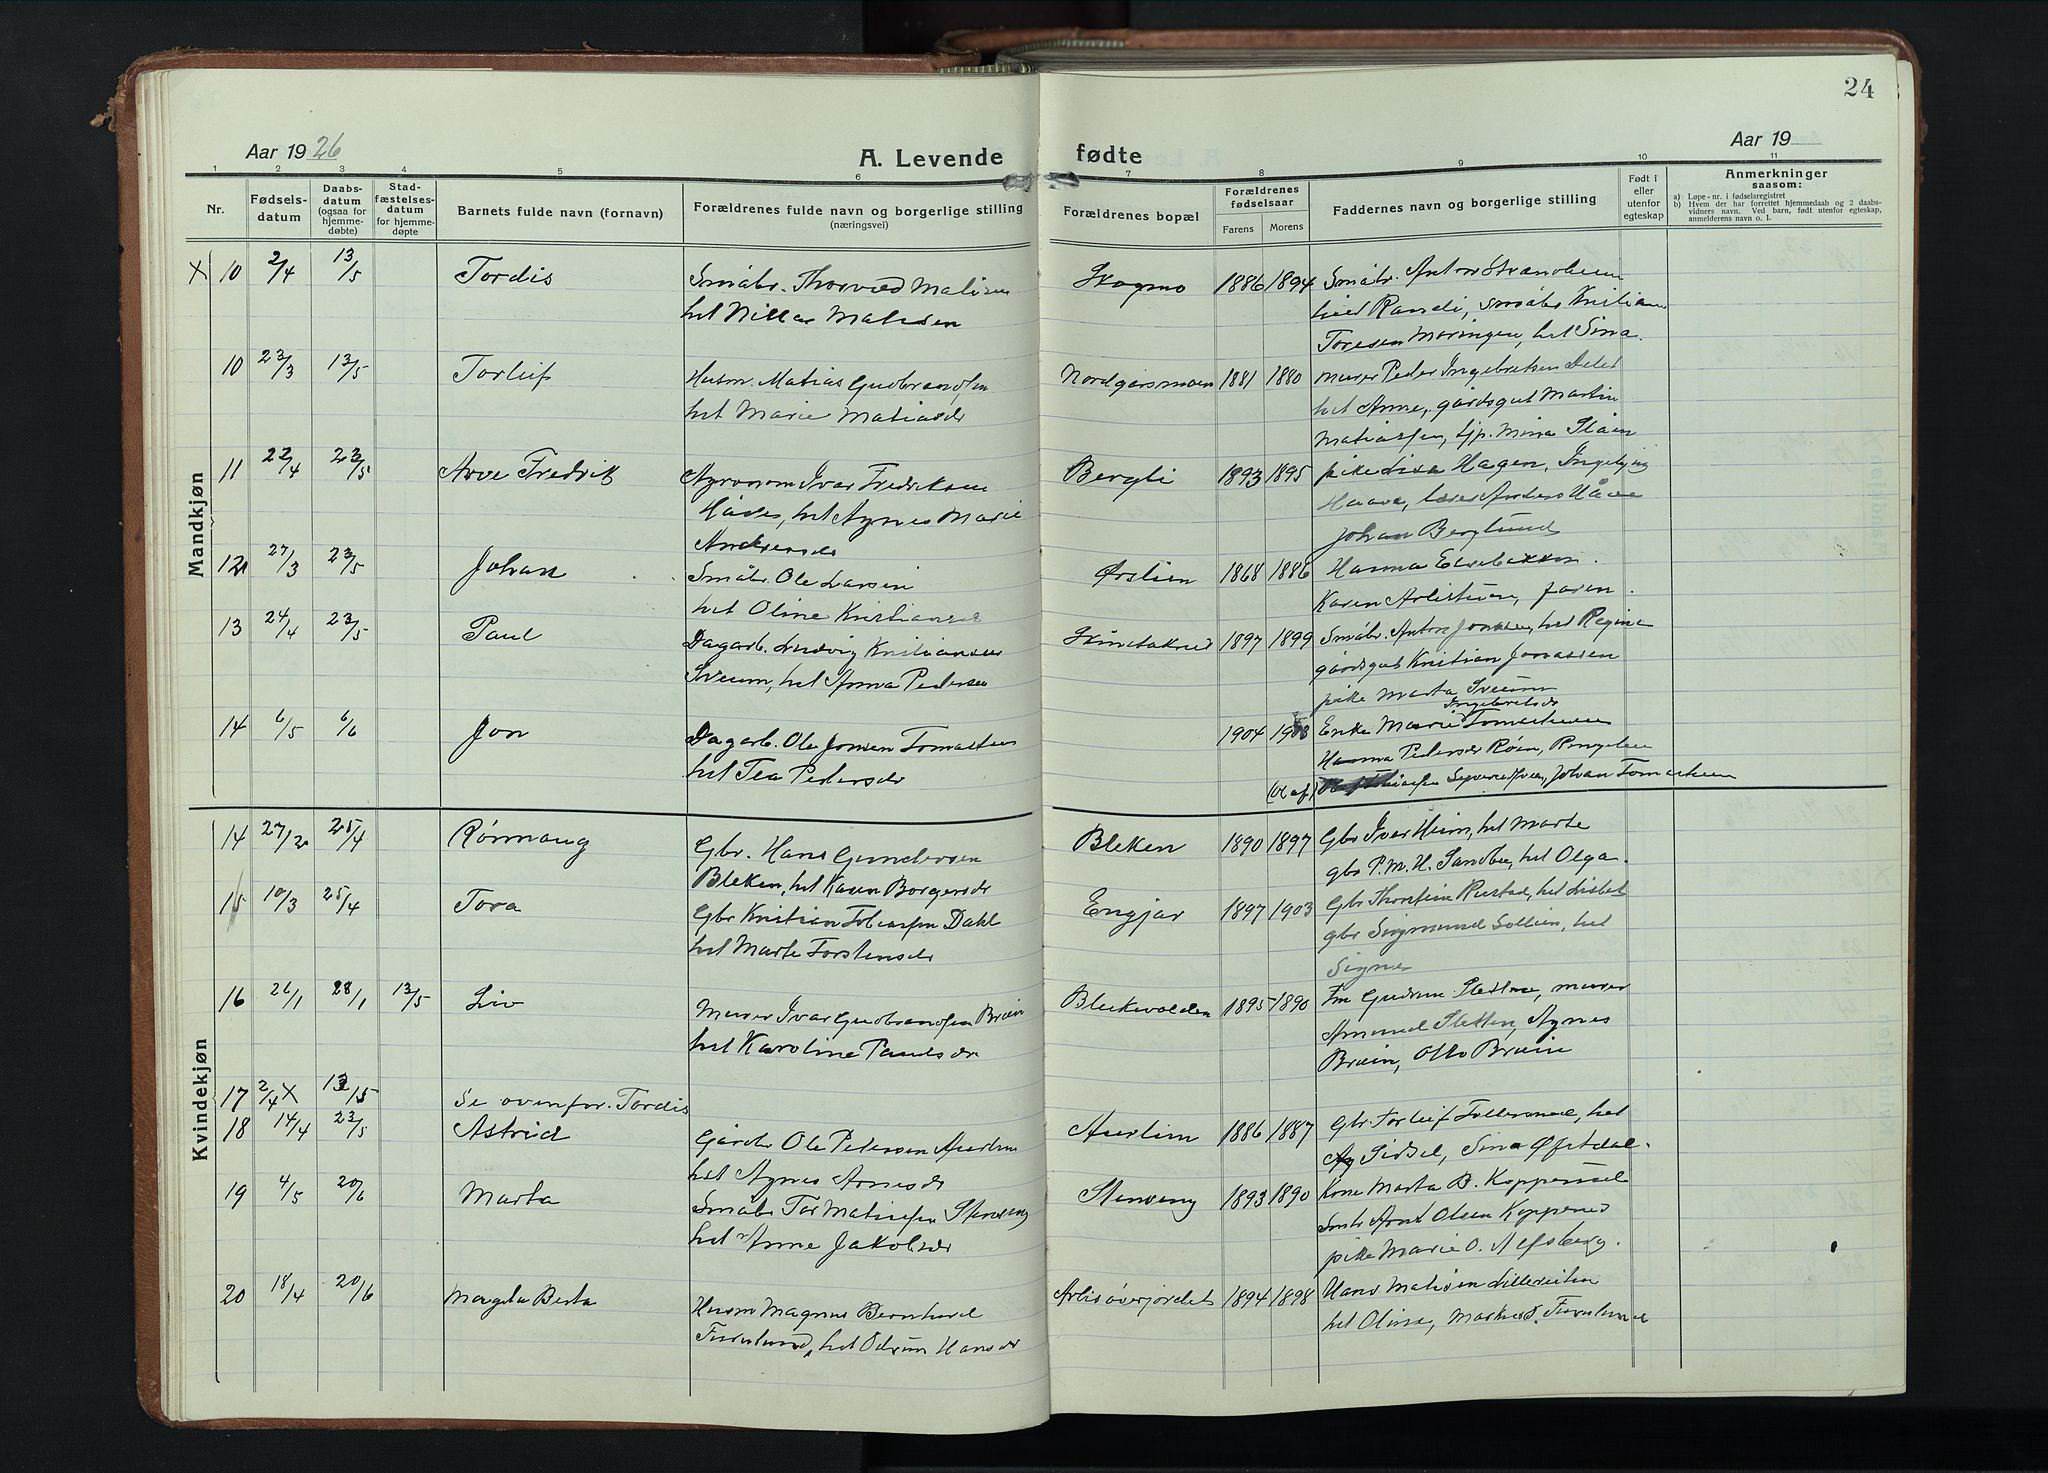 24
Aar 1926
A. Levende fødte
Aar 19
1 2 3 4 5 6 7 8 9 10 11
Nr.
Fødselsdatum
Daabsdatum (ogsaa for hjemmedøbte)
Stadfæstelsesdatum for hjemmedøpte
Barnets fulde navn (fornavn)
Forældrenes fulde navn og borgerlige stilling (næringsvei)
Forældrenes bopæl
Forældrenes fødselsaar
Farens Morens
Faddernes navn og borgerlige stilling
Født i eller utenfor egteskap
Anmerkninger saasom:
a) Løpe-nr. i fødselsregistret
b) Hvem der har forrettet hjemmedaab og 2 daabsvidners navn. Ved barn, født utenfor egteskap, anmelderens navn o. l.
Mandkjøn
X 10 2/4 13/5 Tordis
Småbr. Thorvald Matisen
het Matisen
Skogmo 1886 1894
Småbr. Anton Strandheim
het Randi, småbr Kristian
Toresen Moringen, het Sina.
10 23/3 13/5 Torleif
Husm. Matias Gudbrandsen
het Marie Matiasdr
Nordgarsmoen 1881 1880
murer Peder Ingebretsen
het Anne, gårdsgut Martin
Matiassen, tjp. Mina Slåen
11 22/4 23/5 Arve Fredrik
Agronom Ivar Fredriksen
het Agnes Marie
Andersdr
Bergli 1893 1895
pike Lisa Hagen, Ingebjørg
lærer Anders
Johan Berglund
12 27/3 23/5 Johan
Småbr. Ole Larsen
het Oline Kristiansdr
Ørslien 1868 1886
Hanna
Karen
13 24/4 23/5 Paul
Dagarb. Ludvig Kristiansen
Sveum, het Anna Pedersdr
1897 1899
Småbr. Anton het Regine
gårdsgut Kristian Jonassen
pike Marta Sveum
14 6/5 6/6 Jon
Dagarb. Ole Jonsen Tomastuen
het Tea Pedersdr
1904
Ingebretsdr
Enke Marie Tomastuen
Hanna Pedersdr Røen,
(Olaf) Johan Tomastuen
Kvindekjøn
14 27/2 25/4 Rønnaug
Gbr. Hans Gundersen
Bleken, het Karen Borgersdr
Bleken 1890 1897
Gbr Ivar Heim, het Marte
gbr P. M. H. Sandbu, het Olga.
15 10/3 25/4 Tora
Gbr Kristian Tobiassen Dahl
het Marte Torstensdr
Engjar 1897 1903
Gbr Thorstein Rustad, het Lisbet
gbr Sigmund Sollien, het
Signe
16 26/1 28/1 13/5 Liv
Murer Ivar Gudbrandsen Bræin
het Karoline Paulsdr
Blekevolden 1895 1890
Frk Gudrun Sletten, murer
Amund Sletten, Agnes
Bræin, Otto Bræin
17 2/4 X 13/5 Se ovenfor. Tordis
18 14/4 23/5 Astrid
Gårdbr Ole Petersen Aurlien
het Agnes Arnesdr
Aurlien 1886 1887
Gbr Torleif het
Sidsel, Sina Øfstdal.
19 4/5 20/6 Marta
Småbr Tor Matiassen Stensveng
het Anne Jakobsdr
Stensveng 1893 1890
Kone Marta B. Koppervd
Småbr Arne Olsen Koppervd
pike Marie O. Alfsberg.
20 18/4 20/6 Magda Berta
Husm Magnus Bernhard
Furulund, het Hansdr
1894 1898
Hans Matisen
het Olina, Furulund